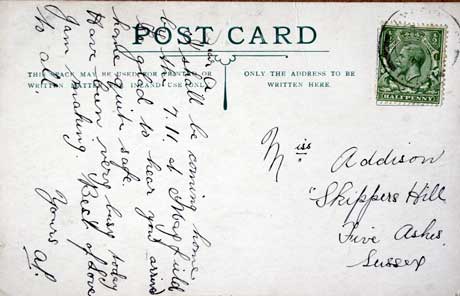 POST CARD
THIS SPACE MAY BE USED FOR PRINTED OR
WRITTEN MATTER INLAND USE ONLY
ONLY THE ADDRESS TO BE
WRITTEN HERE.
HALFPENNY
Dear A
I shall be coming home
7.11. at Mayfield
glad to hear you arrived
home quite safe.
Have been very busy today
Jam making. Best of love
to all.
Yours
Miss Addison
"Skippers Hill
Five Ashes
Sussex